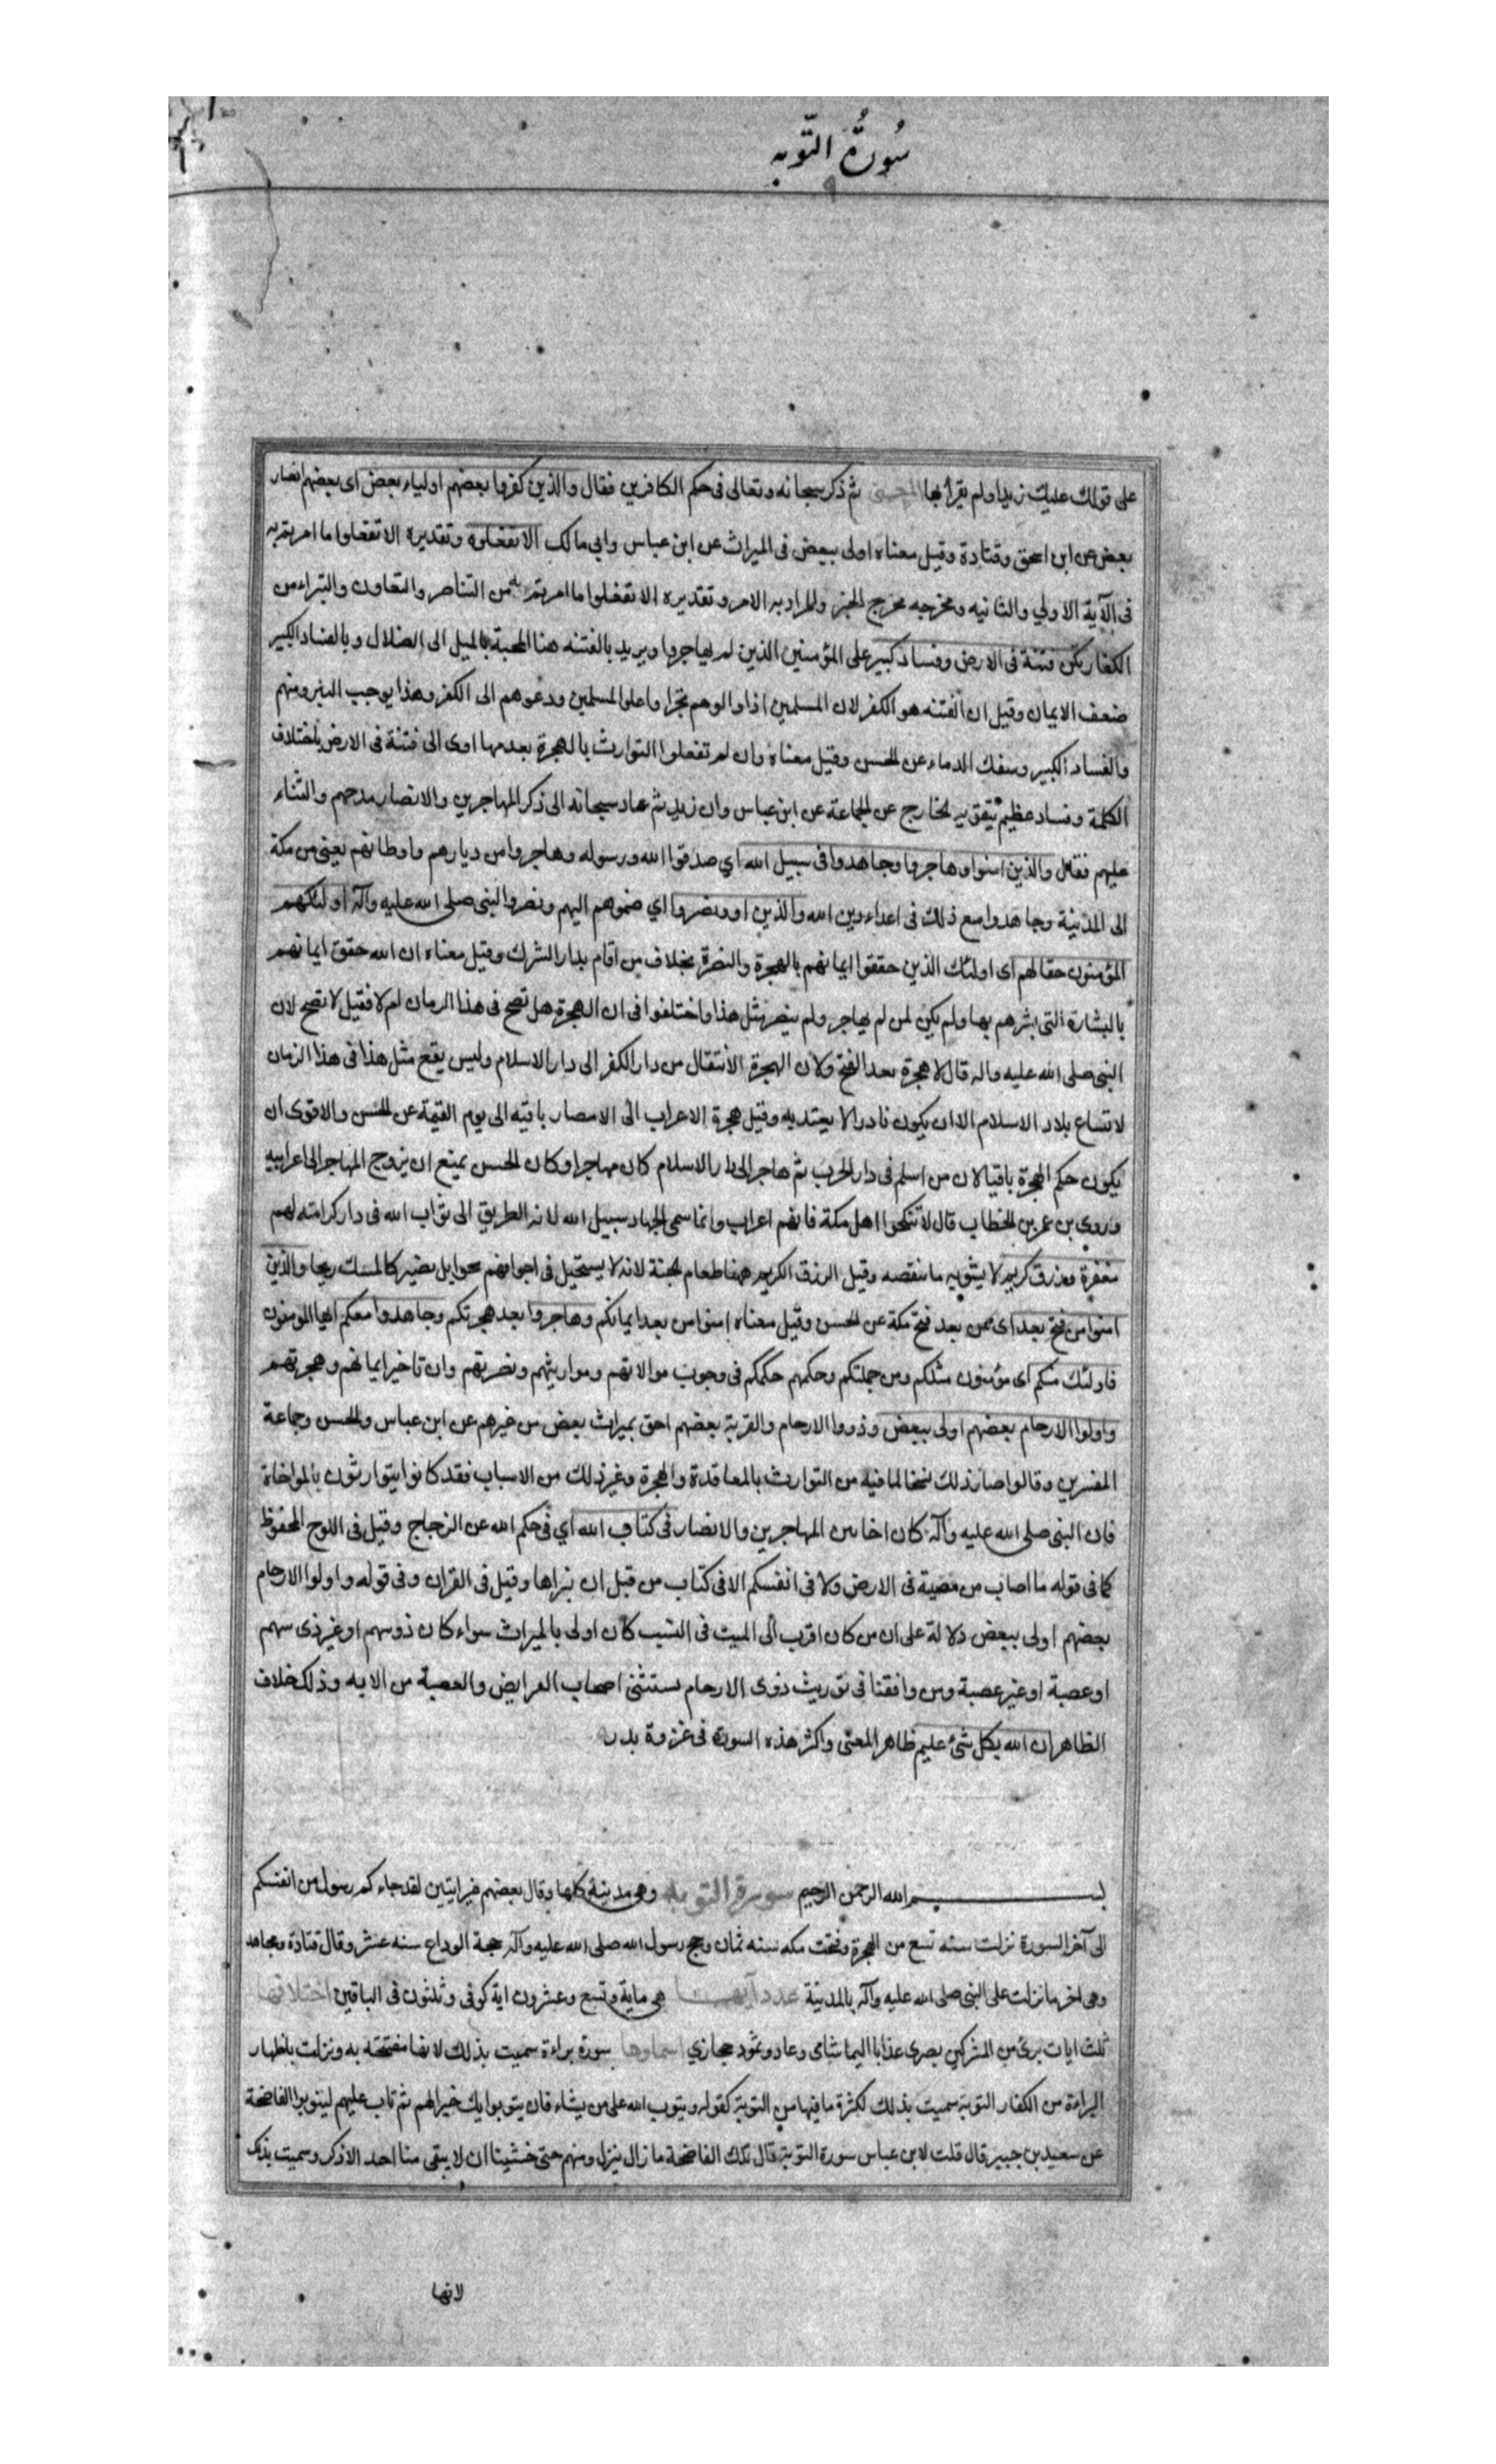 سُورَةُ التّوبه
٩
على قولك عليك زيدا ولم يقرأ بها المعنى ثم ذكر سبحانه وتعالى فى حكم الكافرين فقال والذين كفروا بعضهم اولياء بعض اى بعضهم انصار
بعض عن ابن اسحق وقتادة وقيل معناه اولى ببعض فى الميراث عن ابن عباس وابي مالك الا تفعلوه وتقديره الا تفعلوا ما امرتم به
فى الآية الاولي والثانيه ومخرجه مخرج الخبر والمراد به الامر وتقديره الا تفعلوا ما امرتم به من التناصر والتعاون والتبراء من
الكفار تكن فتنة فى الارض وفساد كبير على المؤمنين الذين لم يهاجروا ويريد بالفتنه هنا المحبة بالميل الى الضلال وبالفساد الكبير
ضعف الايمان وقيل ان الفتنه هو الكفر لان المسلمين اذا والوهم تجرا واعلى المسلمين ودعوهم الى الكفر وهذا يوجب التبرو منهم
والفساد الكبير وسفك الدماء عن الحسن وقيل معناه وان لم تفعلوا التوارث بالهجرة بعدمها ادى الى فتنة فى الارض باختلاف
الكلمة وفساد عظيم بتقويه الخارج عن الجماعة عن ابن عباس وان زيد ثم عاد سبحانه الى ذكر المهاجرين والانصار مدحهم والثناء
عليهم فقال والذين امنوا وهاجروا وجاهدوا فى سبيل الله اي صدقوا الله ورسوله وهاجروا من ديارهم واوطانهم يعنى من مكة
الى المدينة وجاهدوا مع ذلك فى اعداء دين الله والذين اووا ونصروا اي ضموهم اليهم ونصروا النبى صلى الله عليه وآله اولئك هم
المؤمنون حقا لهم اى اولئك الذين حققوا ايمانهم بالهجرة والنصرة بخلاف من اقام بدار الشرك وقيل معناه ان الله حقق ايمانهم
بالبشارة التى بشرهم بها ولم يكن لمن لم يهاجر ولم ينصر مثل هذا واختلفوا فى ان الهجرة هل تصح فى هذا الزمان ام لا فقيل لا تصح لان
النبى صلى الله عليه واله قال لا هجرة بعد الفتح ولان الهجرة الانتقال من دار الكفر الى دار الاسلام وليس يقع مثل هذا فى هذا الزمان
لاتساع بلاد الاسلام الا ان يكون نادرا لا يعتد به وقيل هجرة الاعراب الى الامصار باقيه الى يوم القيمة عن الحسن والاقوى ان
يكون حكم الهجرة باقيا لان من اسلم فى دار الحرب ثم هاجر الى دار الاسلام كان مهاجرا وكان الحسن يمنع ان يزوج المهاجر الى اعرابيه
وروى بن عمر بن الخطاب قال لا تنكحوا اهل مكة فانهم اعراب وانما سمى الجهاد سبيل الله لانه الطريق الى ثواب الله فى دار كرامته لهم
مغفرة ورزق كريم لا يشوبه ما ينقصه وقيل الرزق الكريم ههنا طعام الجنة لانه لا يستحيل فى اجوافهم نجوا بل يصير كالمسك ريحا والذين
امنوا من فتح بعد اى من بعد فتح مكة عن الحسن وقيل معناه امنوا من بعد ايمانكم وهاجروا بعد هجرتكم وجاهدوا معكم ايها المومنون
فاولئك منكم اى مؤمنون مثلكم ومن جملتكم وحكمهم حكمكم فى وجوب موالاتهم ومواريثهم ونصرتهم وان تاخر ايمانهم وهجرتهم
واولوا الارحام بعضهم اولى ببعض وذووا الارحام والقربة بعضهم احق بميراث بعض من غيرهم عن ابن عباس والحسن وجماعة
المفسرين وقالوا صار ذلك نسخا لما فيه من التوارث بالمعاقدة والهجرة وغير ذلك من الاسباب فقد كانوا يتوارثون بالمواخاة
فان النبى صلى الله عليه وآله كان اخا بين المهاجرين والانصار فى كتاب الله اي فى حكم الله عن الزجاج وقيل فى اللوح المحفوظ
كما فى قوله ما اصاب من مصيبة فى الارض ولا فى انفسكم الا فى كتاب من قبل ان نبراها وقيل فى القران وفى قوله واولوا الارحام
بعضهم اولى ببعض دلالة على ان من كان اقرب الى الميت فى النسب كان اولى بالميراث سواء كان ذو سهم او غير ذى سهم
او عصبة او غير عصبة ومن وافقنا فى توريث ذوى الارحام يستثنى اصحاب الفرايض والعصبة من الايه وذلك خلاف
الظاهر ان الله بكل شئ عليم ظاهر المعنى واكثر هذه السورة فى غزوة بدر
بسم الله الرحمن الرحيم سورة التوبة وهى مدنية كلها وقال بعضهم غير ايتين لقد جاءكم رسول من انفسكم
الى آخر السورة نزلت سنه تسع من الهجرة وفتحت مكه سنه ثمان وحج رسول الله صلى الله عليه وآله حجة الوداع سنه عشر وقال قتادة ومجاهد
وهى اخر ما نزلت على النبى صلى الله عليه وآله بالمدينة عدد آيها هى ماية وتسع وعشرون اية كوفى وثلثون فى الباقين اختلافها
ثلث ايات برئ من المشركين بصرى عذابا اليما شاى وعاد وثمود حجازي اسماوها سورة براءة سميت بذلك لانها مفتتحة به ونزلت باظهار
البراءة من الكفار التوبة سميت بذلك لكثرة ما فيها من التوبة كقوله ويتوب الله على من يشاء فان يتوبوا يك خيرا لهم ثم تاب عليهم ليتوبوا الفاضحة
عن سعيد بن جبير قال قلت لابن عباس سورة التوبة قال تلك الفاضحة ما زال ينزل ومنهم حتى خشينا ان لا يبقى منا احد الا ذكر وسميت بذلك
لانها